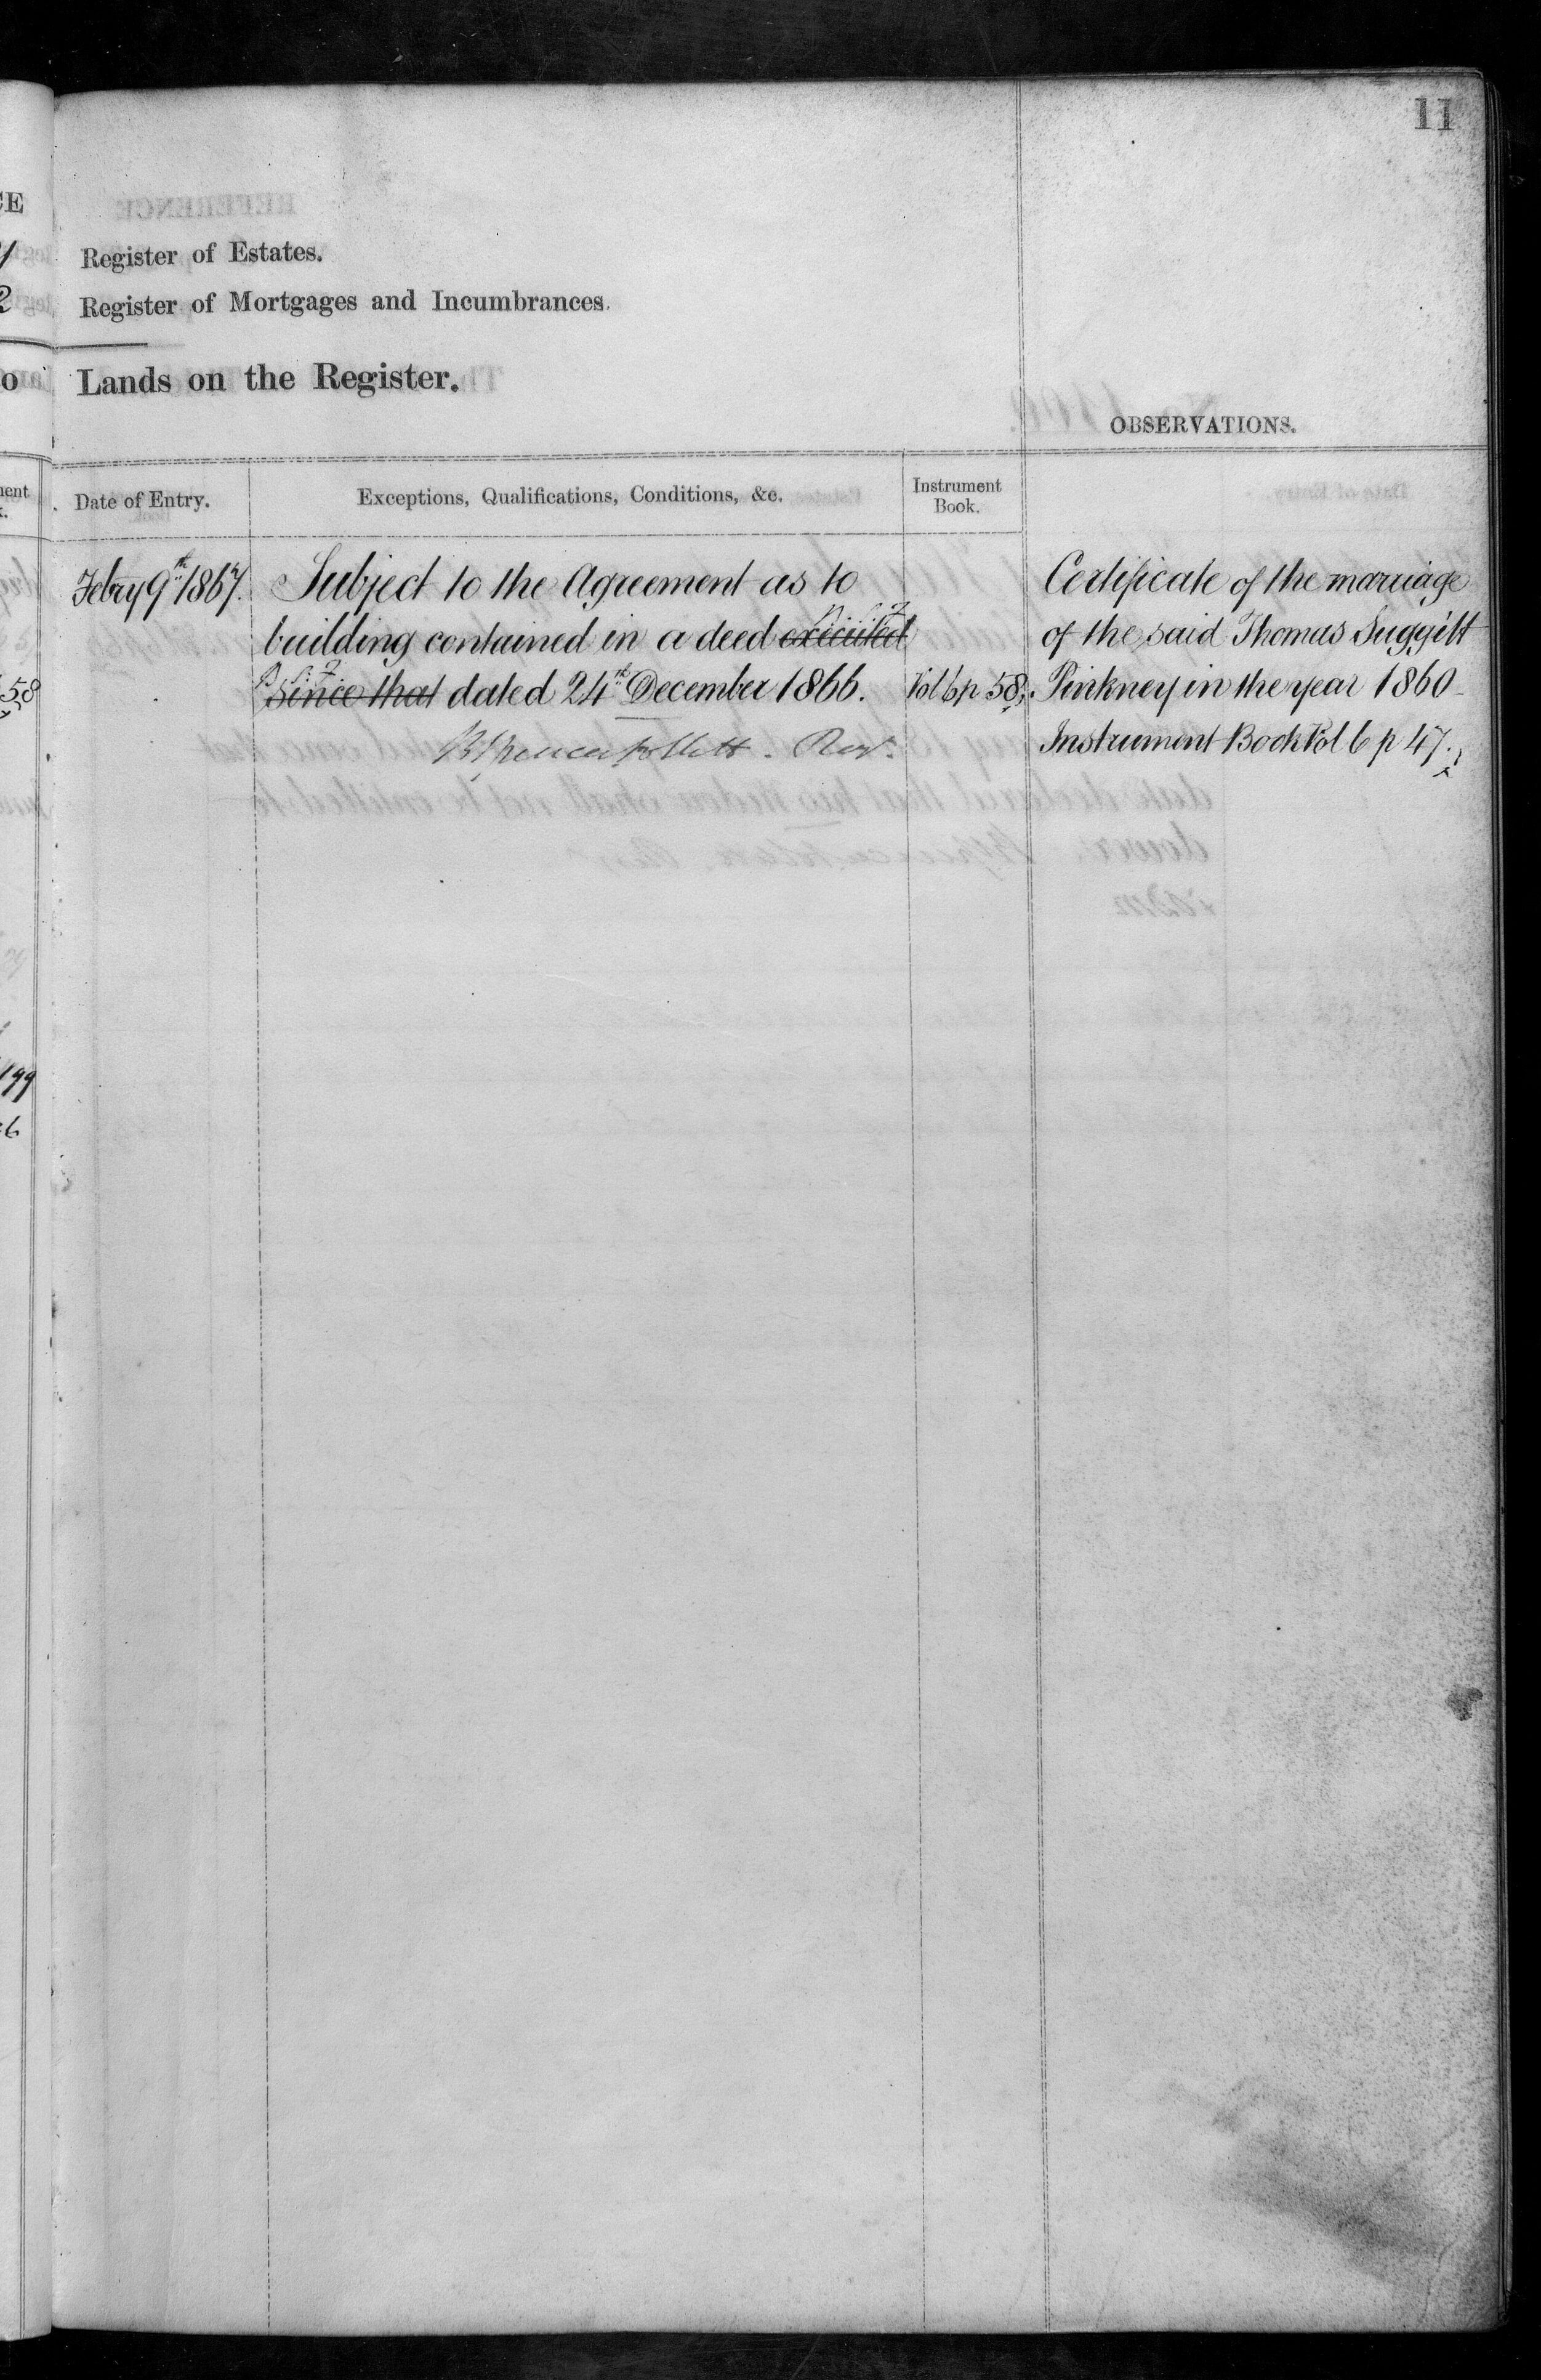 11
Register of Estates.
Register of Mortgages and Incumbrances.
Lands on the Register.
OBSERVATIONS.
Date of Entry.
Exceptions, Qualifications, Conditions, &c.
Instrument
Book.
Febry 9th 1867.
Subject to the Agreement as to
building contained in a deed executed
since that dated 24th December 1866.
Vol 6 p 58.
Brspencer Follett. Regr.
Certificate of the marriage
of the said Thomas Suggitt
Pinkney in the year 1860
Instrument Book Vol 6 p 47.
58
199